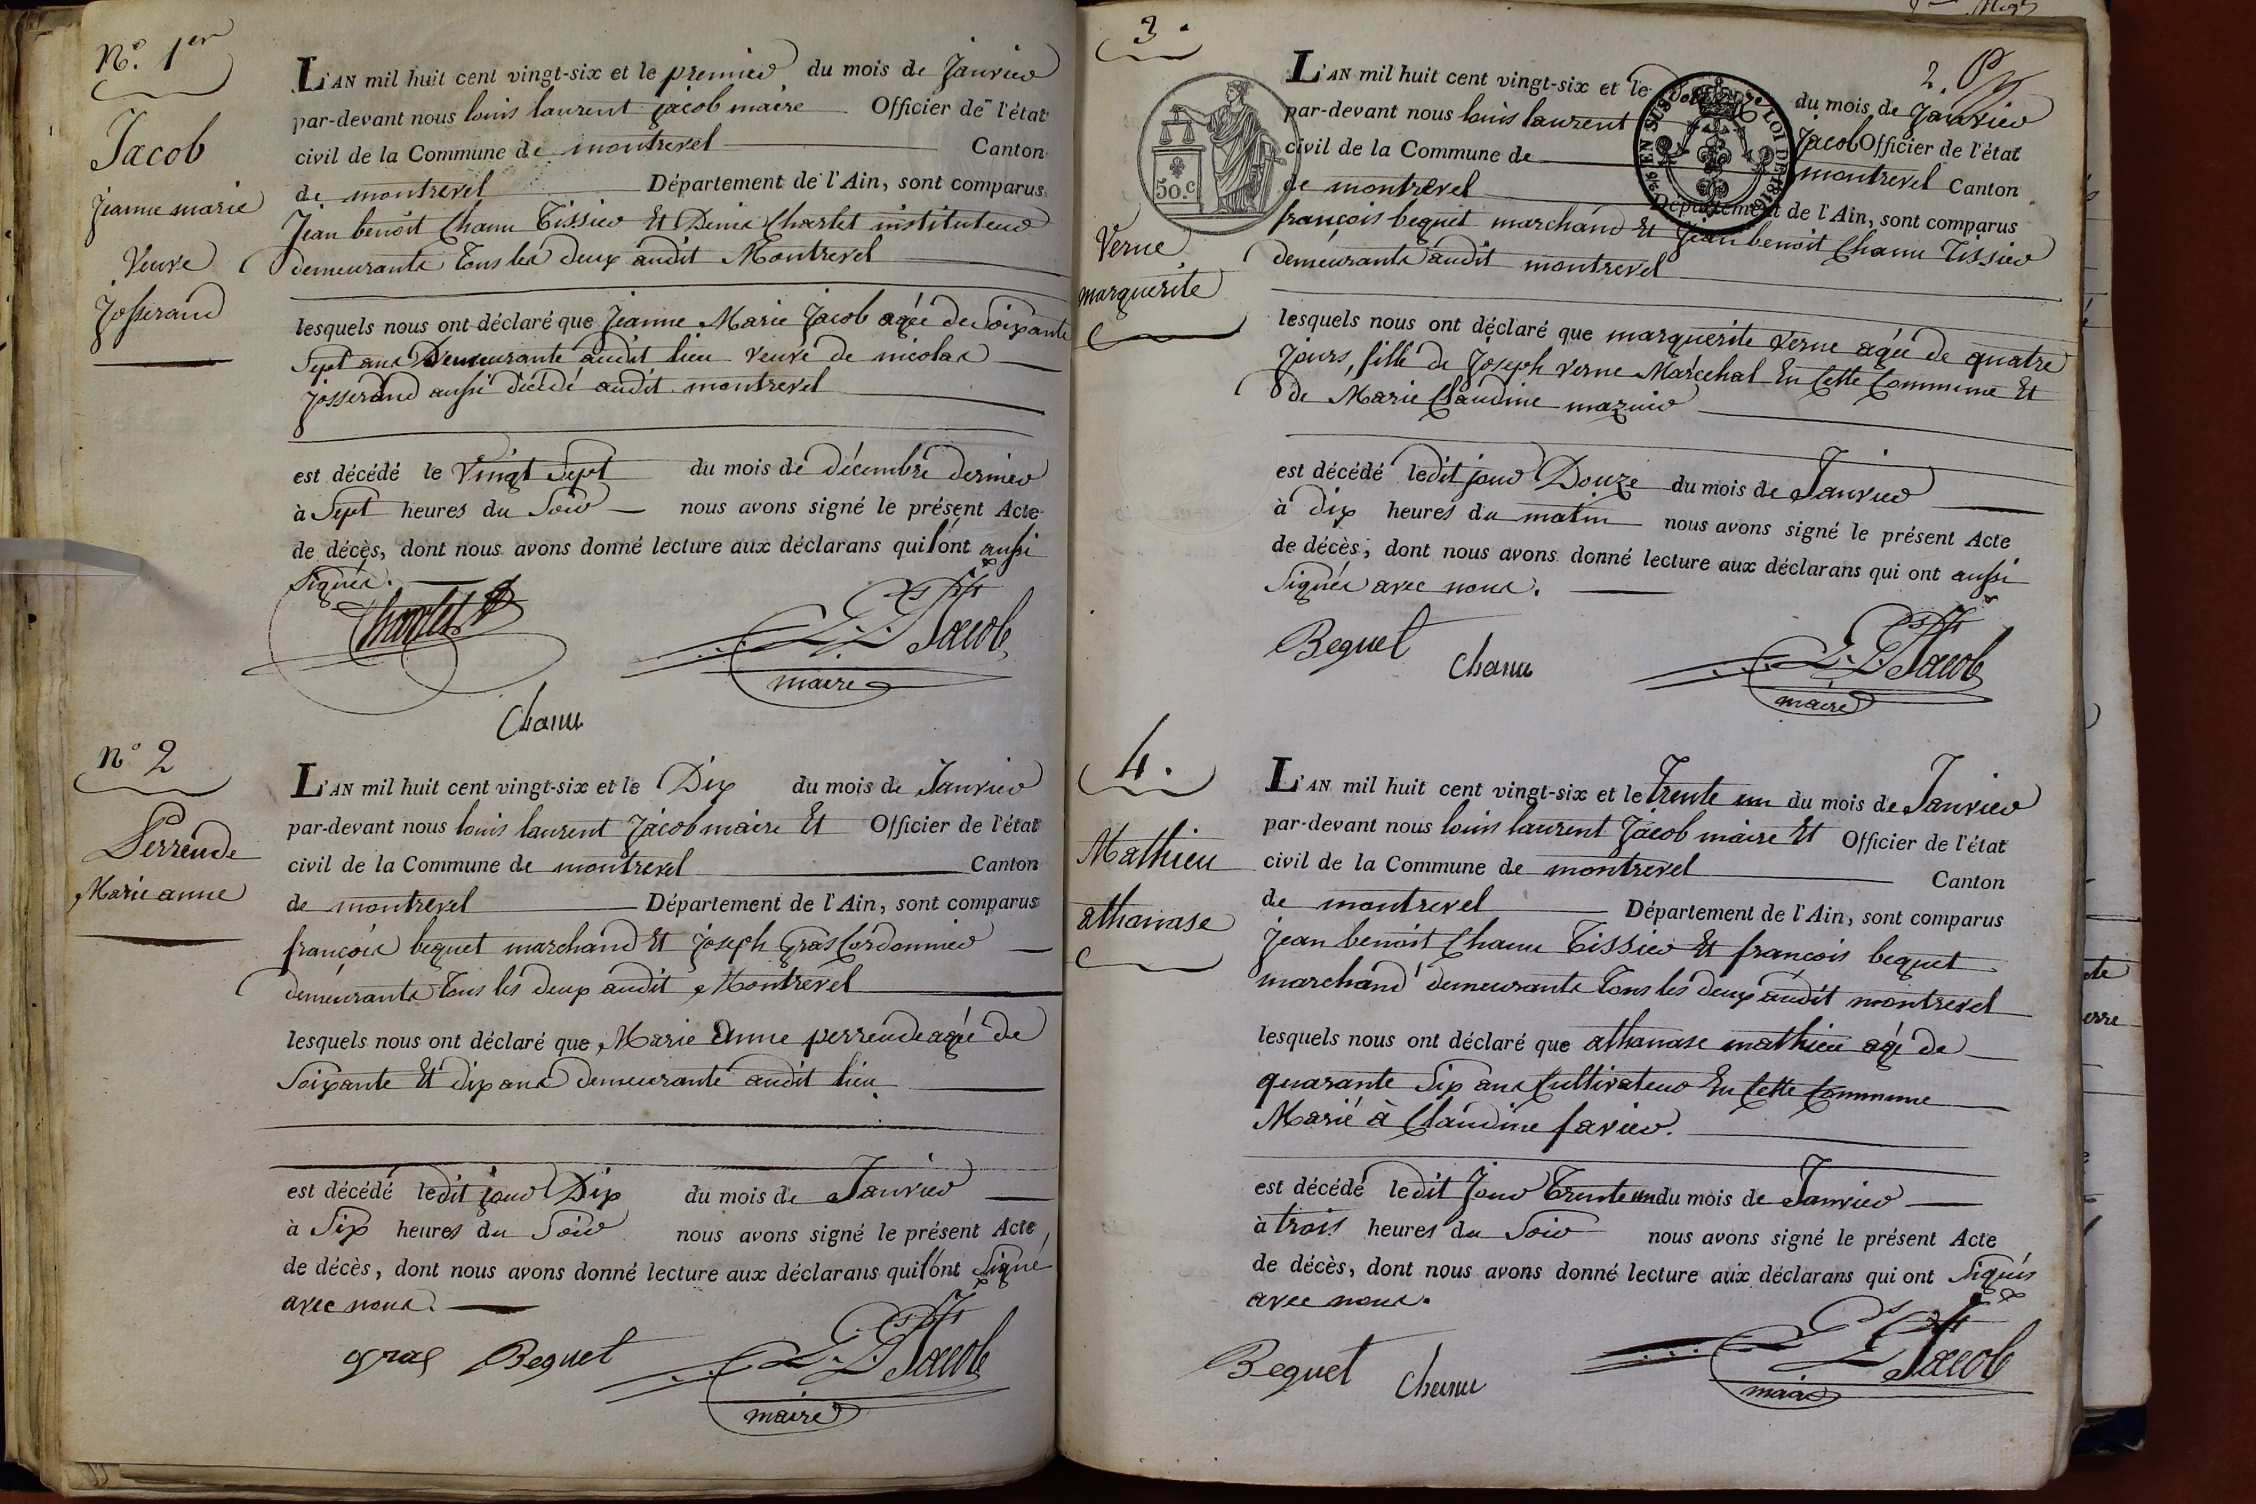 N.º 1er
Jacob
jeanne marie
Veuve
josserand
L'AN mil huit cent vingt-six et le premier du mois de Janvier
par-devant nous louis laurent jacob maire Officier de l'état
civil de la Commune de montrevel Canton
de montrevel Département de l'Ain, sont comparus
Jean benoit Chanu Tissier Et Denis Charlet instituteur
demeurants tous les deux audit Montrevel
lesquels nous ont déclaré que Jeanne Marie Jacob agée de Soixante
Sept ans Demeurante audit lieu veuve de nicolas
josserand aussi décédé audit montrevel
est décédé le Vingt Sept du mois de décembre dernier
à Sept heures du Soir nous avons signé le présent Acte
de décès, dont nous avons donné lecture aux déclarans qui l'ont aussi
Signés.
Charlet
L. L. Jacob
maire
Chanu
Nº 2
Perrende
Marie anne
L'AN mil huit cent vingt-six et le Dix du mois de Janvier
par-devant nous louis laurent Jacob maire Et Officier de l'état
civil de la Commune de montrevel Canton
de montrevel Département de l'Ain, sont comparus
françois bequet marchand Et joseph Gras Cordonnier
demeurants tous les deux audit Montrevel
lesquels nous ont déclaré que Marie Anne perrende agée de
Soixante Et dix ans demeurante audit lieu
est décédé ledit jour Dix du mois de Janvier
à Six heures du Soir nous avons signé le présent Acte
de décès, dont nous avons donné lecture aux déclarans qui l'ont Signé
avec nous.
gras Bequet L. L. Jacob
maire
3.
Verne
marguerite
50.c
2.
L'AN mil huit cent vingt-six et le Douze du mois de Janvier
par-devant nous louis laurent Jacob Officier de l'état
civil de la Commune de montrevel Canton
de montrevel Département de l'Ain, sont comparus
françois bequet marchand Et Jean benoit Chanu Tissier
demeurants audit montrevel
lesquels nous ont déclaré que marguerite Verne agée de quatre
Jours, fille de Joseph Verne Maréchal En Cette Commune Et
de Marie Claudine mazuir
est décédé ledit jour Douze du mois de Janvier
à dix heures du matin nous avons signé le présent Acte
de décès, dont nous avons donné lecture aux déclarans qui ont aussi
Signés avec nous.
Bequet Chanu L. L. Jacob
maire
4.
Mathieu
athanase
L'AN mil huit cent vingt-six et le Trente un du mois de Janvier
par-devant nous louis laurent Jacob maire Et Officier de l'état
civil de la Commune de montrevel Canton
de montrevel Département de l'Ain, sont comparus
Jean benoit Chanu Tissier Et françois bequet
marchand demeurants tous les deux audit montrevel
lesquels nous ont déclaré que athanase mathieu agé de
quarante Six ans Cultivateur En Cette Commune
Marié à Claudine favier.
est décédé ledit Jour Trente un du mois de Janvier
à trois heures du Soir nous avons signé le présent Acte
de décès, dont nous avons donné lecture aux déclarans qui ont Signés
avec nous.
Bequet Chanu L. L. Jacob
maire